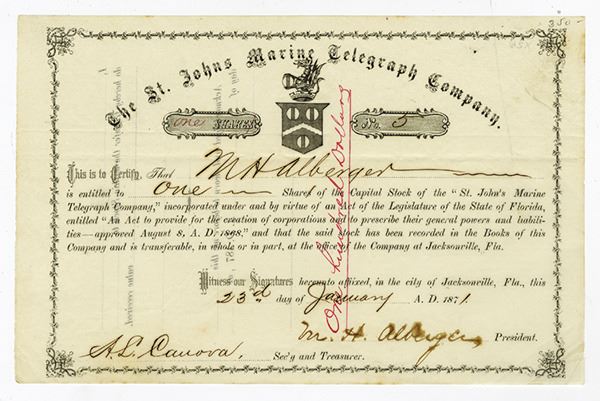 350-
The St. Johns Marine Telegraph Company.
One SHARES No. 5
This is to Certify, That M H Alberger
is entitled to One Shares of the Capital Stock of the "St. John's Marine
Telegraph Company," incorporated under and by virtue of an Act of the Legislature of the State of Florida,
entitled "An Act to provide for the creation of corporations and to prescribe their general powers and liabili-
ties—approved August 8, A. D. 1868," and that the said stock has been recorded in the Books of this
Company and is transferable, in whole or in part, at the office of the Company at Jacksonville, Fla.
Witness our Signatures hereunto affixed, in the city of Jacksonville, Fla., this
23d day of January A. D. 1871.
M. H. Alberger President.
A. L. Canova. Sec'y and Treasurer.
One hundred Dollars